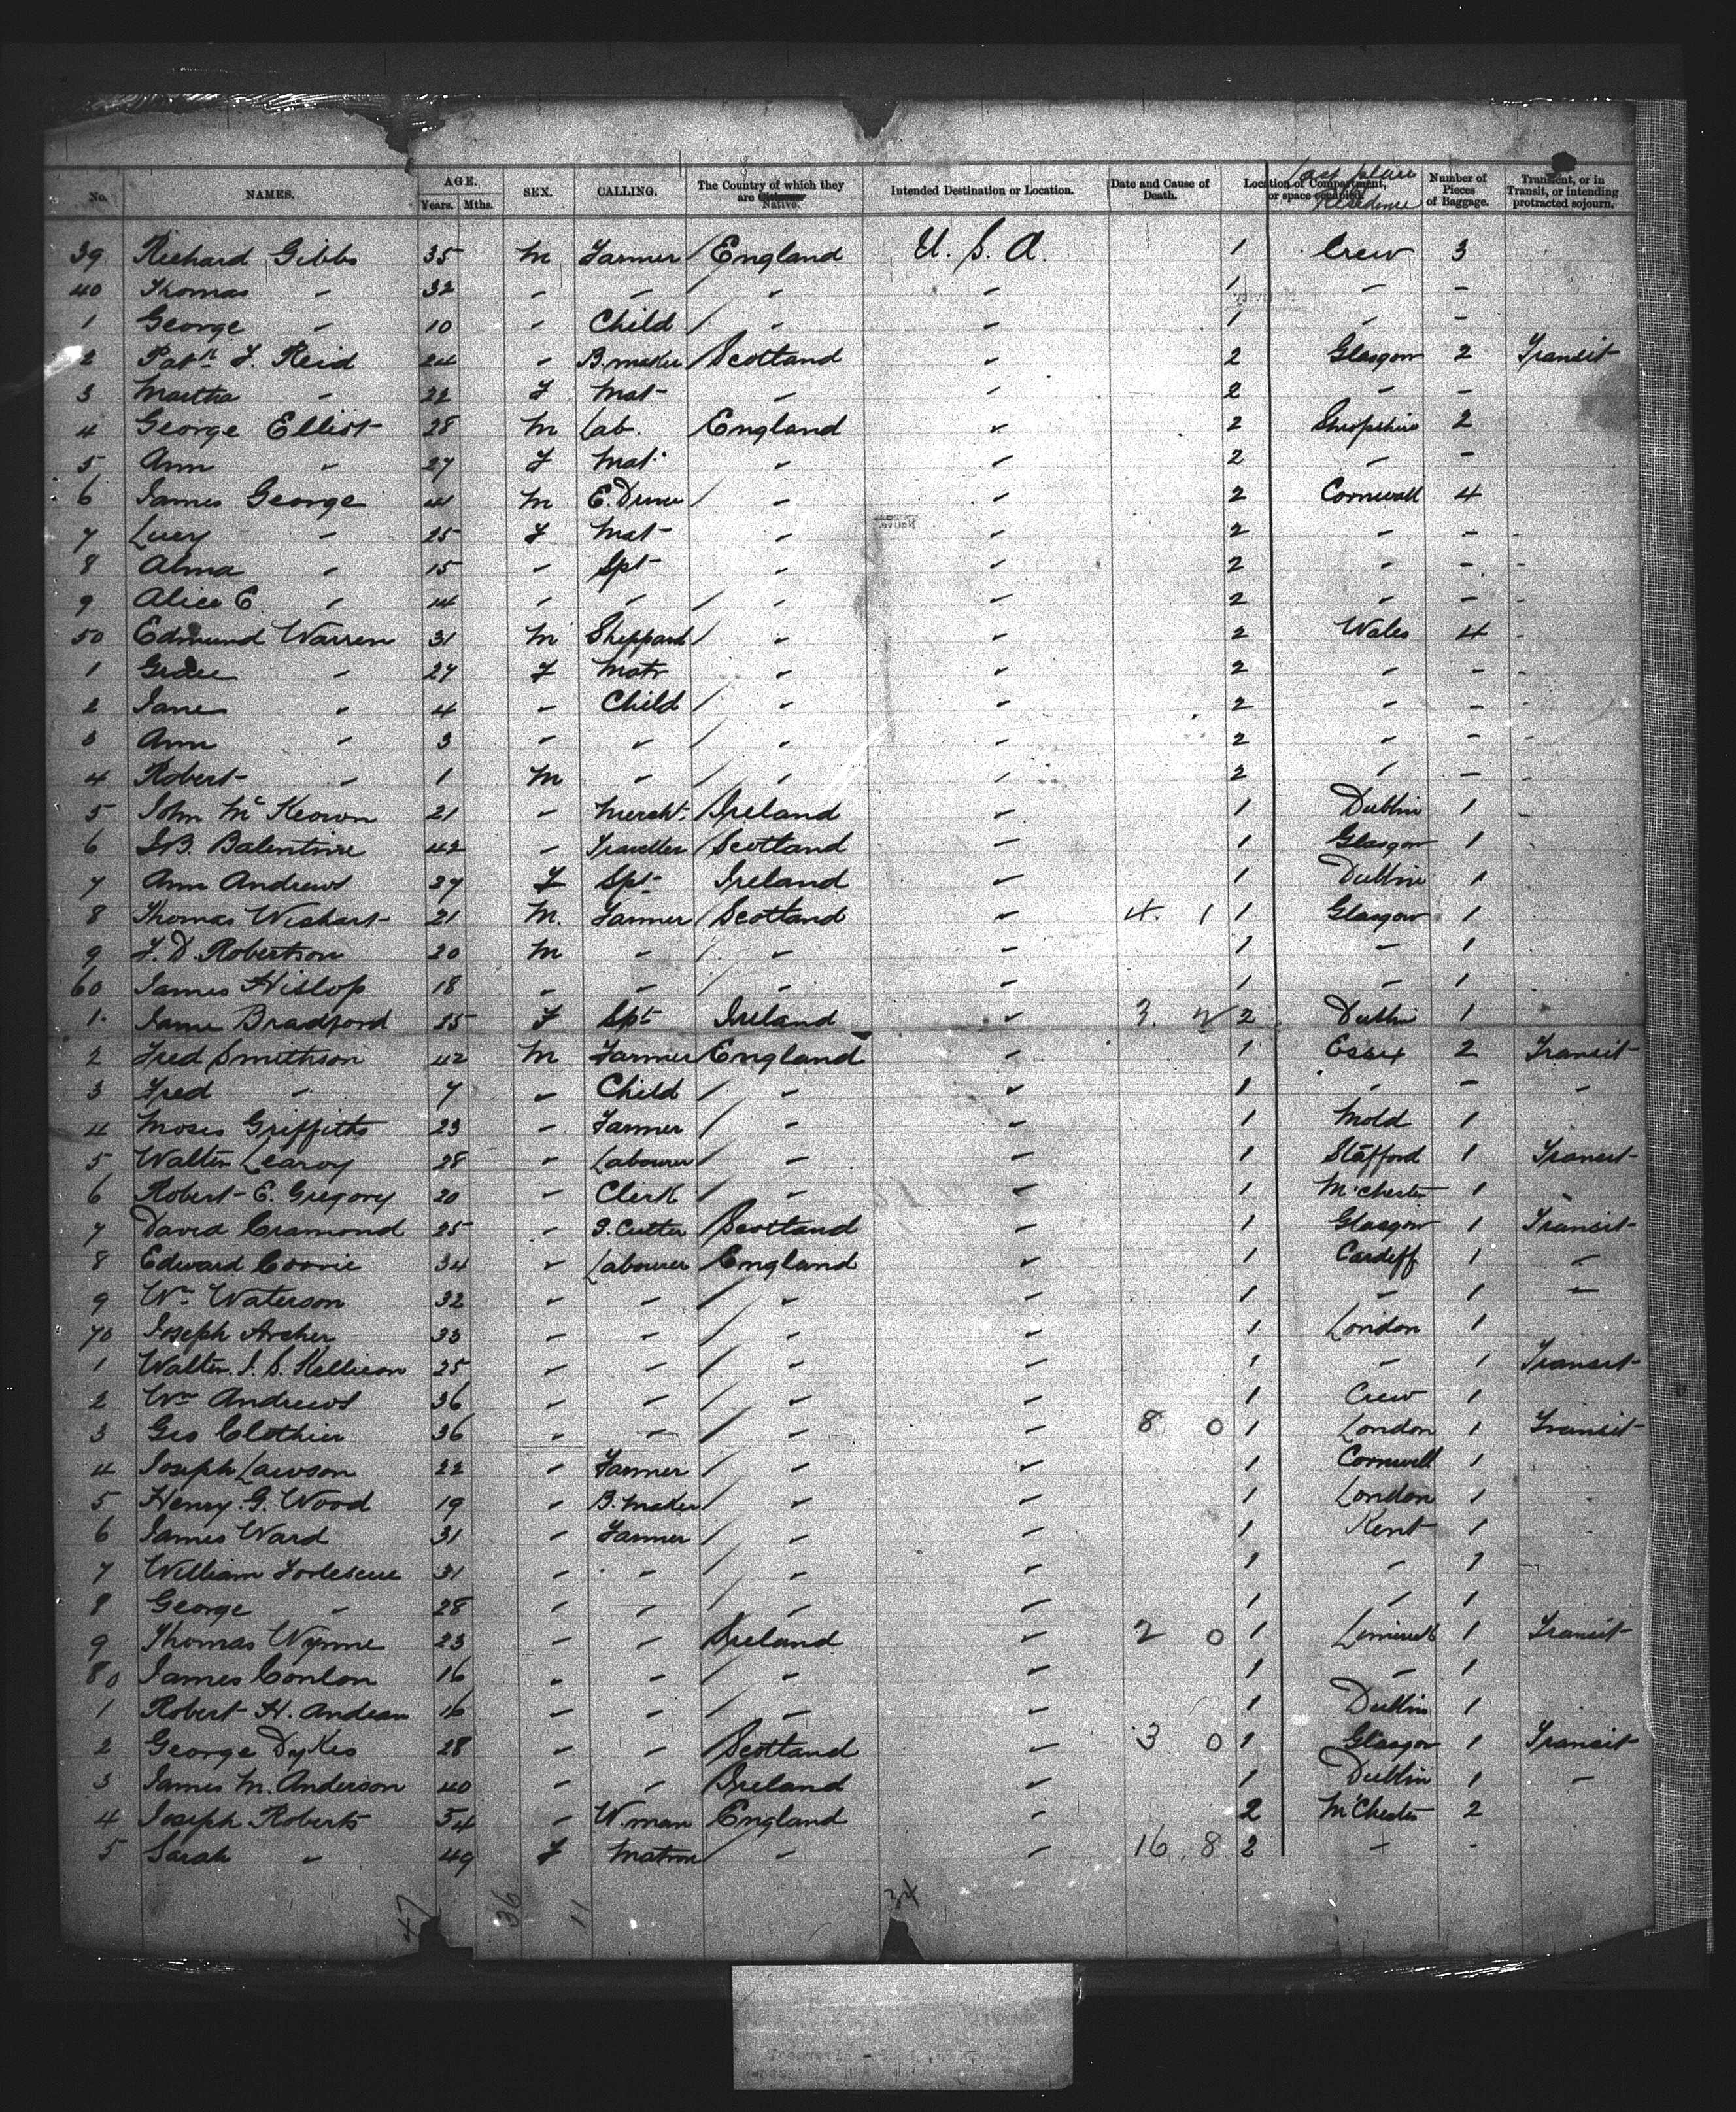 No. NAMES. AGE. Years. Mths. SEX. CALLING. The Country of which they are Native. Intended Destination or Location. Date and Cause of Death. Location of Compartment, or space occupied. Last place Residence Number of Pieces of Baggage. Transient, or in Transit, or intending protracted sojourn.
39 Richard Gibbs 35 M Farmer England U. S. A. 1 Crew 3
40 Thomas " 32 " " " " 1 " "
1 George " 10 " Child " " 1 " "
2 Patk J. Reid 24 " B. maker Scotland " 2 Glasgow 2 Transit
3 Martha " 22 F Mat " " 2 " "
4 George Elliot 28 M Lab. England " 2 Shropshire 2
5 Ann " 27 F Mat " " 2 " "
6 James George 41 M E. Driver " " 2 Cornwall 4
7 Lucy " 25 F Mat " " 2 " " "
8 Alma " 15 " Spt " " 2 " " "
9 Alice E. " 14 " " " " 2 " " "
50 Edmund Warren 31 M Sheppard " " 2 Wales 4 "
1 Grace " 27 F Matr " " 2 " " "
2 Jane " 4 " Child " " 2 " " "
3 Ann " 3 " " " " 2 " " "
4 Robert " 1 M " " " 2 " " "
5 John McKeown 21 " Mercht. Ireland " 1 Dublin 1
6 J.B. Balentine 42 " Traveller Scotland " 1 Glasgow 1
7 Ann Andrews 27 F Spt Ireland " 1 Dublin 1
8 Thomas Wishart 21 M. Farmer Scotland " 4. 1 1 Glasgow 1
9 J. D. Robertson 20 M " " " 1 " 1
60 James Hislop 18 " " " " 1 " 1
1 Jane Bradford 25 F Spt Ireland " 3. 2 Dublin 1
2 Fred Smithson 42 M Farmer England " 1 Essex 2 Transit
3 Fred " 7 " Child " " 1 " " "
4 Moses Griffiths 23 " Farmer " " 1 Mold 1
5 Walter Learoy 28 " Labourer " " 1 Stafford 1 Transit
6 Robert E. Gregory 20 " Clerk " " 1 M'chester 1
7 David Cramond 25 " Cutter Scotland " 1 Glasgow 1 Transit
8 Edward 34 " Labourer England " 1 Cardiff 1 "
9 Wm Waterson 32 " " " " 1 " 1 "
70 Joseph Archer 33 " " " " 1 London 1
1 Walter J. S. Kellieon 25 " " " " 1 " 1 Transit
2 Wm Andrews 36 " " " " 1 Crew 1
3 Geo Clothier 36 " " " " 8 0 1 London 1 Transit
4 Joseph Lawson 22 " Farmer " " 1 Cornwall 1
5 Henry. G. Wood 19 " B. Maker " " 1 London 1
6 James Ward 31 " Farmer " " 1 Kent 1
7 William Fortescue 31 " " " " 1 " 1
8 George " 28 " " " " 1 " 1
9 Thomas Wynne 23 " " Ireland " 2 0 1 Limerick 1 Transit
80 James Conlon 16 " " " " 1 " 1
1 Robert H. 16 " " " " 1 Dublin 1
2 George Dykes 28 " " Scotland " 3 0 1 Glasgow 1 Transit
3 James M. Anderson 40 " " Ireland " 1 Dublin 1 "
4 Joseph Roberts 54 " W. man England " 2 M'Chester 2
5 Sarah " 49 F Matron " " 16. 8 2 " "
47 36 11 34